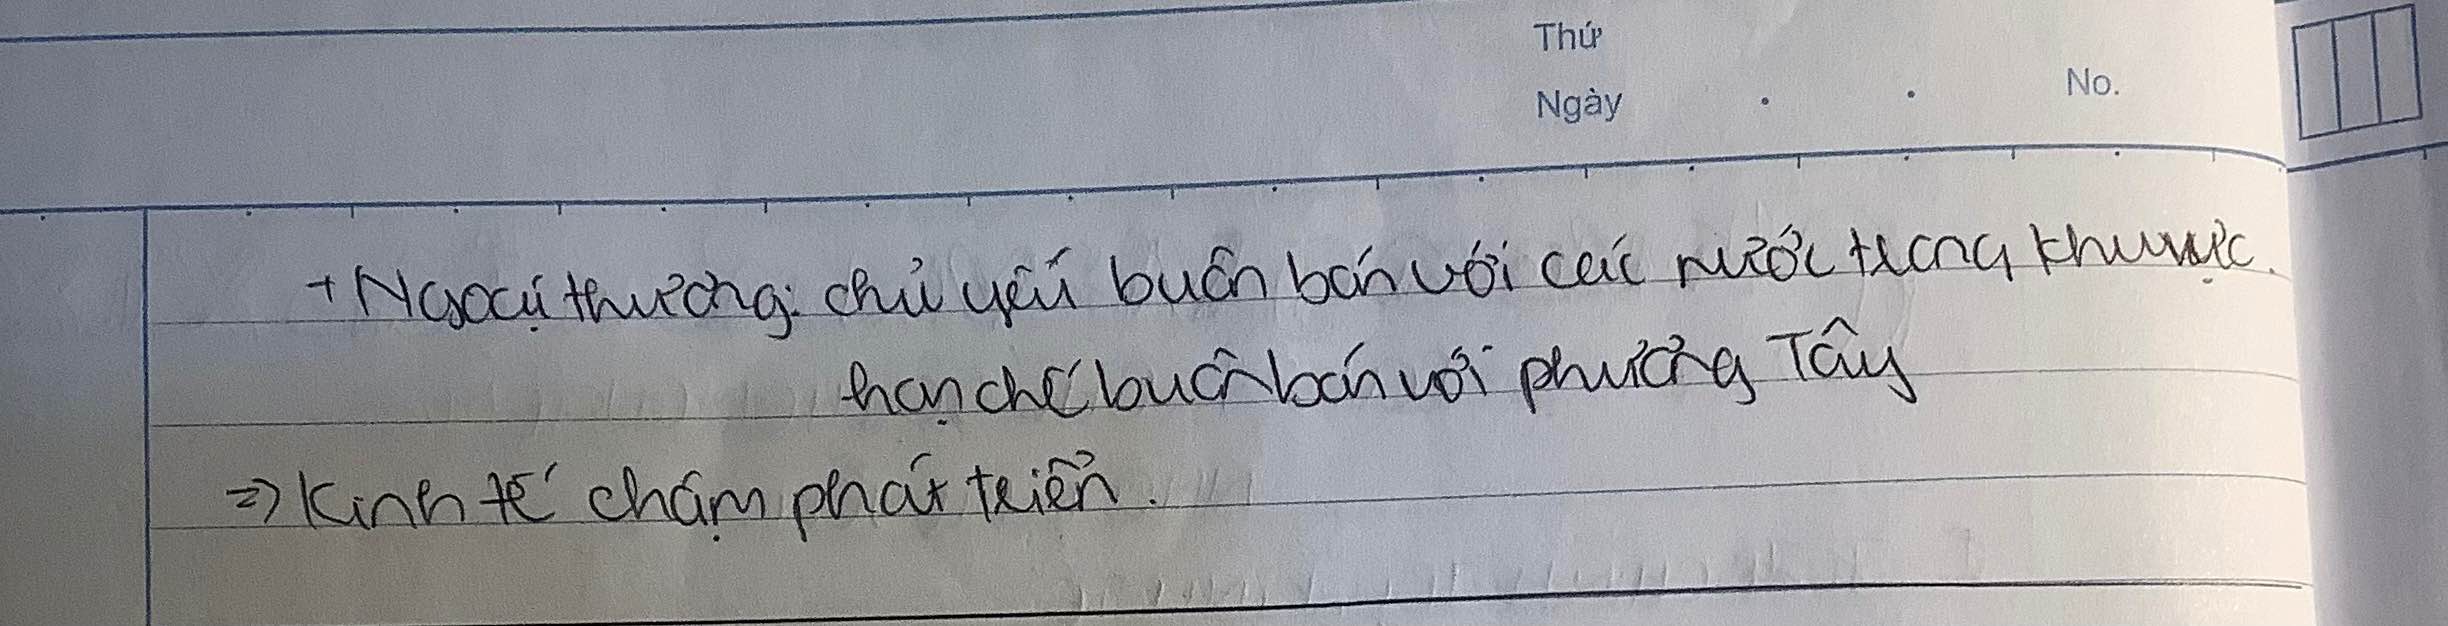 Thứ
Ngày . . No.
+ Ngoại thương: chủ yếu buôn bán với các nước trong khu vực.
hạn chế buôn bán với phương Tây
=> Kinh tế chậm phát triển.